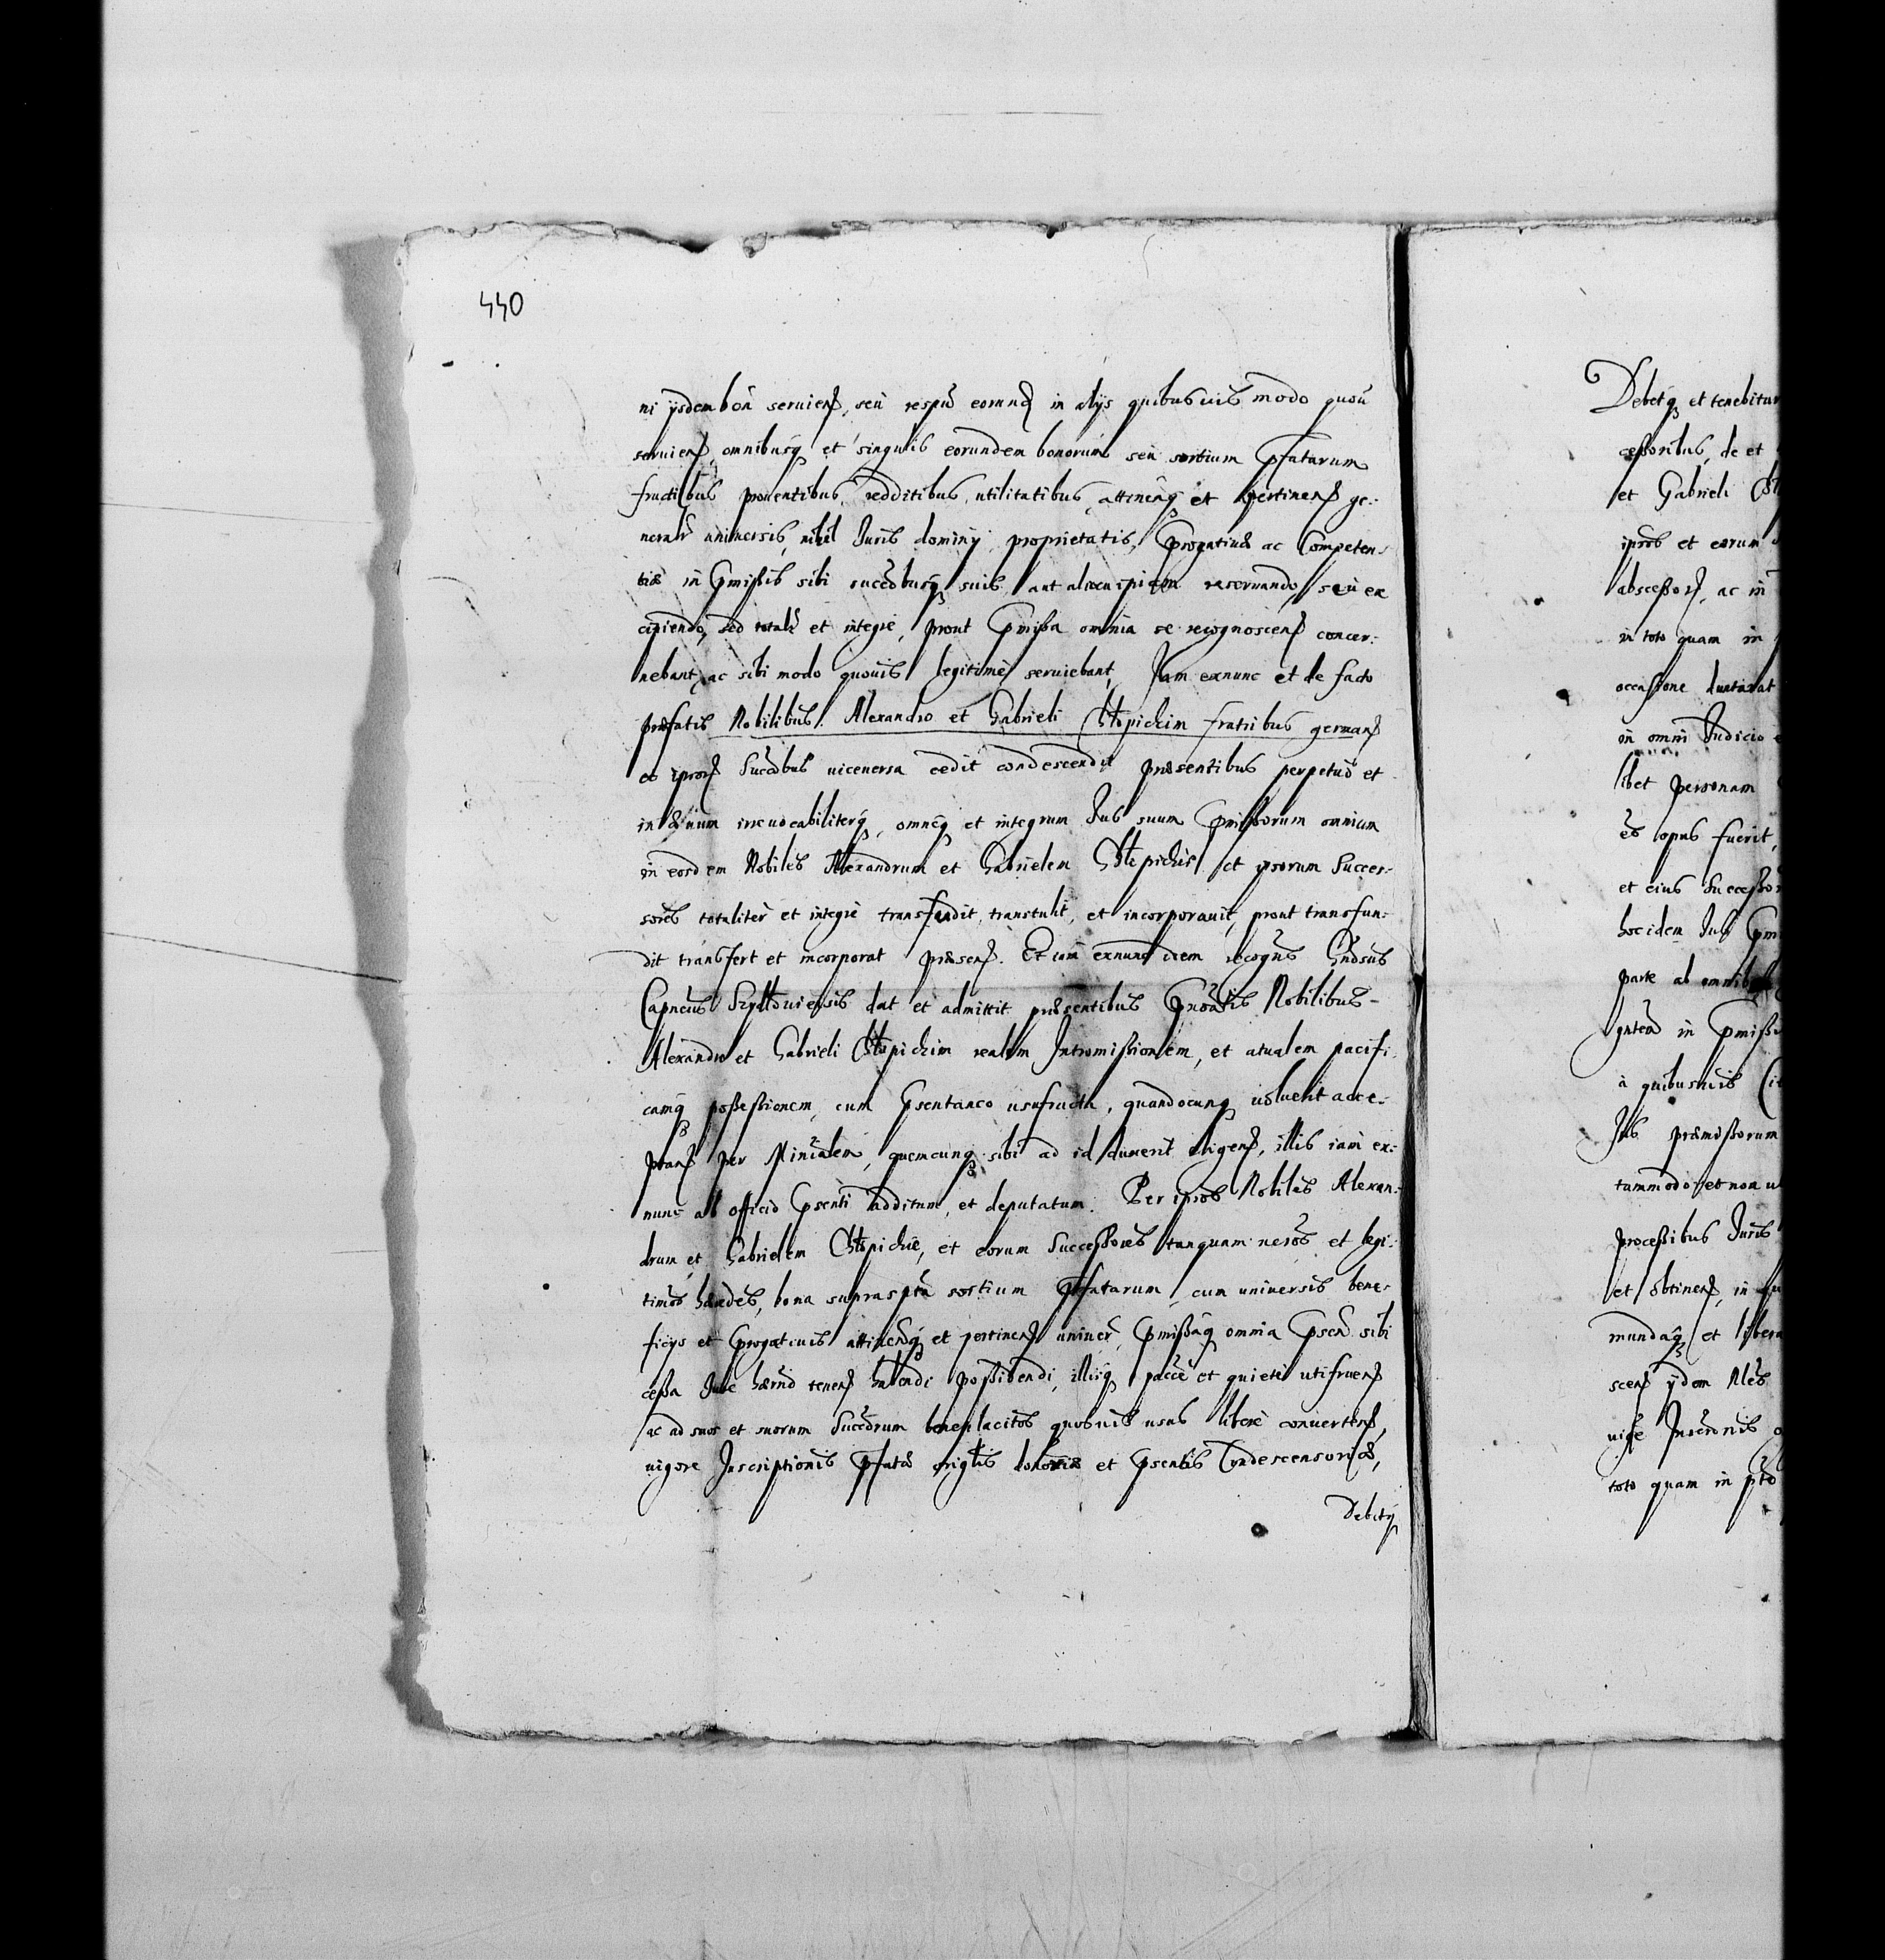 440
ni ijsdem bon seruien, seu respũ eorund in alijs quibusuis modo quou
seruien, omnibusq et singulis eorundem bonorum seu sortium Pfatarum
fructibus prouentibus, redditibus, utilitatibus, attinenq et pertinen ge:
neralr uniuersis, nihil Juris dominij proprietatis, Progatiuæ ac Competen-
tiæ in Pmissis sibi succedbusq suis aut alicuipiam reseruando seu ex
cipiendo, sed totalr et integre, prout Pmissa omnia se recognoscen concer:
nebant, ac sibi modo quouis legitime seruiebant, Jam exnunc et de facto
præfatis Nobilibus Alexandro et Gabrieli Chłopickim fratribus german
et ipsor Succedbus viceuersa cedit condescendit præsentibus perpetuo et
in æuum irreuocabiliterq, omneq et integrum Jus suum Pmissorum omnium
in eosdem Nobiles Alexandrum et Gabrielem Chłopickis et ipsorum Succes:
sores totaliter et integre transfundit, transtulit, et incorporauit, prout transfun:
dit transfert et incorporat præsen. Et iam exnunc idem recogns Gndsus
Capneus Szydłouiensis dat et admittit præsentibus Pnoatis Nobilibus-
Alexandro et Gabrieli Chłopickim realem Intromissionem, et atualem pacifi:
camq possessionem, cum Psentaneo usufructu, quandocunq uoluerit acce-
ptan per Minialem, quemcunq sibi ad id duxerit eligen, illis iam ex:
nunc ab officio Psenti additum, et deputatum. Per ipsos Nobiles Alexan:
drum et Gabrielem Chłopickie, et eorum Successores tanquam ueros et legi:
timos hæredes, bona supraspta sortium Pfatarum, cum uniuersis bene:
ficijs et Progatiuis attinenq et pertinen uniuer, Pmissaq omnia Psen sibi
cessa Jure hæred tenen habendi possidendi, illisq pacce et quiete utifruen
ac ad suos et suorum Succedrum beneplacitos quosuis usus libere conuerten,
uigore Inscriptionis Pfatæ origlis donoriæ et Psentis Condescensoriæ,
Debetq
Debetq et tenebitur
cessoribus, de et
et Gabrieli
ipsos et eorum
abscessor, ac in
in toto quam in
occasione duntaxat
in omni Judicio
libet personam
opus fuerit,
et eius Successor
hoc idem Jus
parte ab omnibus
in Pmissi
à quibusuis
Jus præmissorum
tummodo et non
processibus Juris
et obtinen, in
mundaq et libera
scen ijdem Nles
uige Inscrinis
toto quam in pto